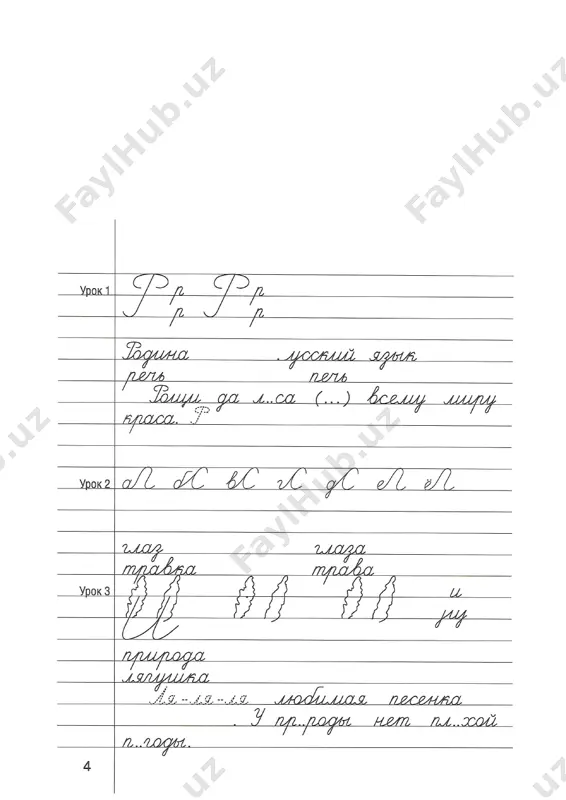 FaylHub.uz FaylHub.uz
Урок 1 Рр Рр
р р
Родина .усский язык
речь печь
Рощи да л..са (...) всему миру
краса. Р
FaylHub.uz FaylHub.uz
Урок 2 аЛ бС вС гС дС еЛ ёЛ
глаз глаза
травка трава
Урок 3 и
природа
лягушка
Ля-ля-ля любимая песенка
. У пр..роды нет пл..хой
п..годы.
4